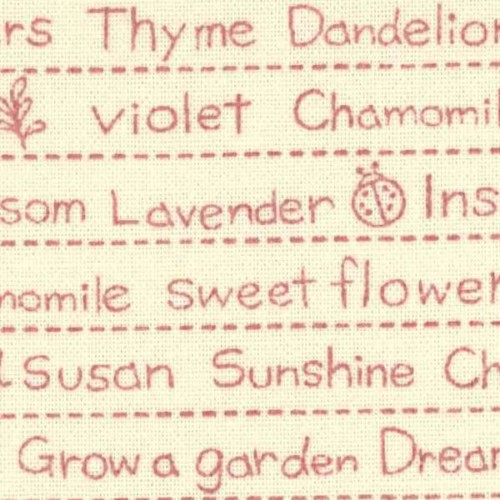 rs Thyme Dandelion
violet Chamomil
som Lavender Ins
momile sweet flower
l Susan Sunshine Ch
Grow a garden Drear